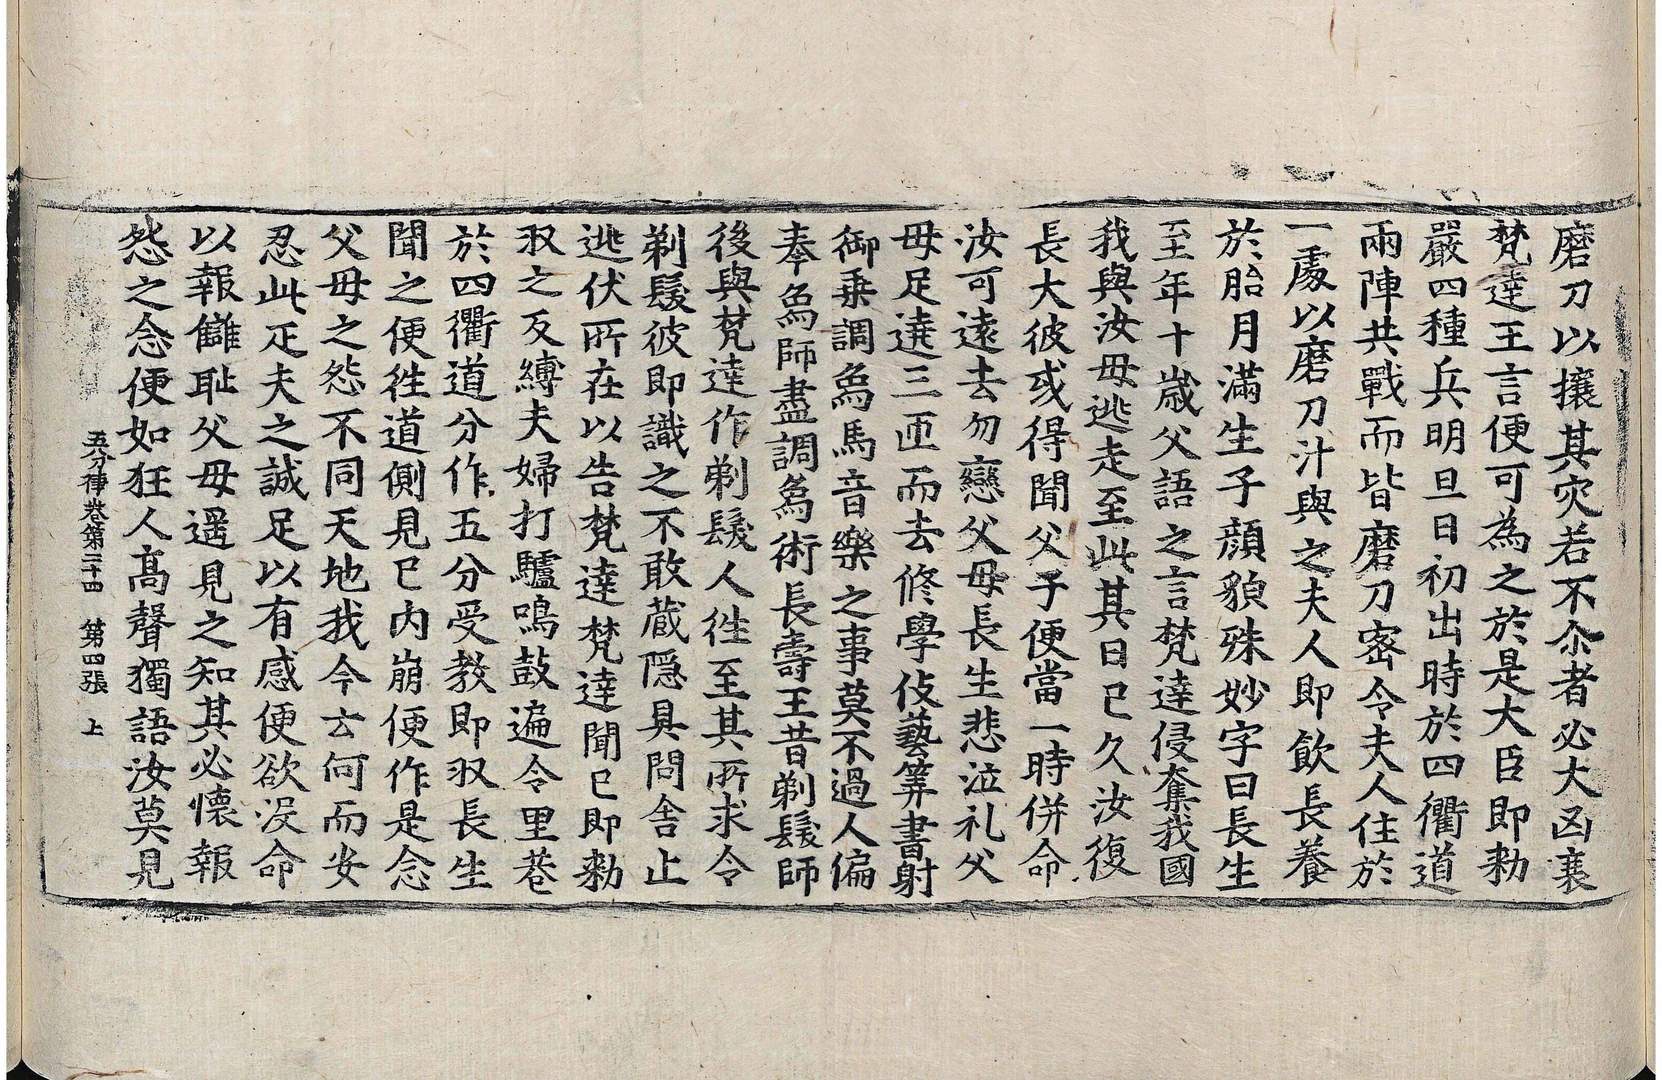 磨刀以攘其灾若不尒者必大凶衰
梵達王言便可為之於是大臣即勑
嚴四種兵明旦日初出時於四衢道
兩陣共戰而皆磨刀密令夫人住於
一處以磨刀汁與之夫人即飲長養
於胎月滿生子顔貌殊妙字曰長生
至年十歲父語之言梵達侵奪我國
我與汝母逃走至此其日已久汝復
長大彼或得聞父子便當一時併命
汝可遠去勿戀父母長生悲泣礼父
母足遶三匝而去修學伎藝筭書射
御乗調象馬音樂之事莫不過人偏
奉象師盡調象術長壽王昔剃髮師
後與梵達作剃髮人徃至其所求令
剃髮彼即識之不敢蔵隠具問舍止
逃伏所在以告梵達梵達聞已即勑
収之反縛夫婦打驢鳴鼓遍令里巷
於四衢道分作五分受教即収長生
聞之便徃道側見已内崩便作是念
父母之怨不同天地我今云何而安
忍此疋夫之誠足以有感便欲没命
以報讎耻父母遥見之知其必懷報
怨之念便如狂人髙聲獨語汝莫見
五分律卷第二十四　第四張　上